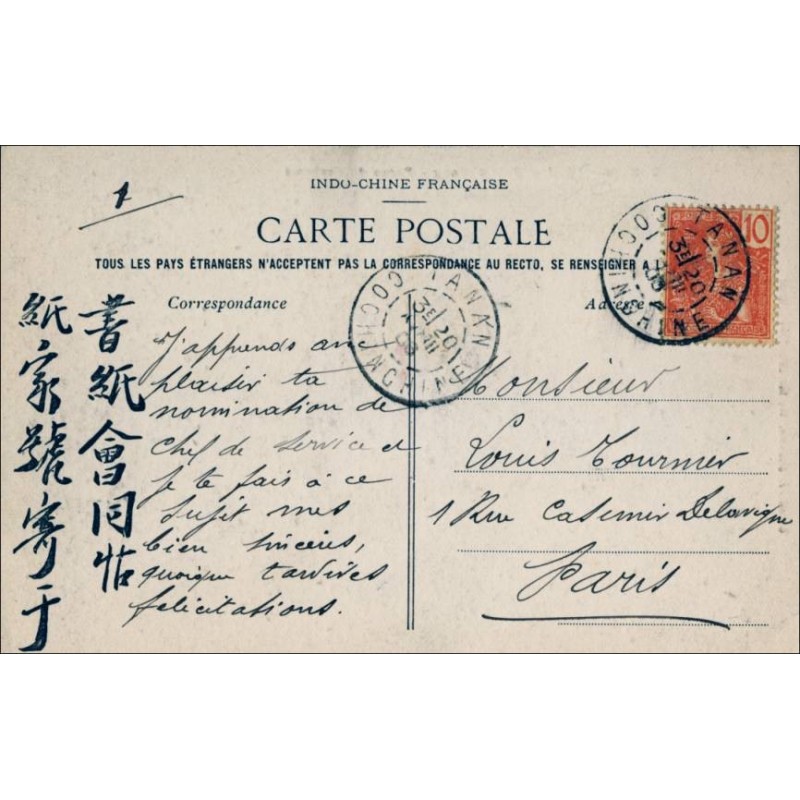 1
INDO-CHINE FRANÇAISE
CARTE POSTALE
TOUS LES PAYS ÉTRANGERS N'ACCEPTENT PAS LA CORRESPONDANCE AU RECTO, SE RENSEIGNER A L
Correspondance
Adresse
10
TANAN
3E 20
COCHINCHINE
TANAN
3E 20
COCHINCHINE
J'apprends avec
plaisir ta
nomination de
chef de service et
je te fais à ce
sujet mes
bien sincères,
quoique tardives
félicitations.
Monsieur
Louis Tournier
1 Rue Casimir Delavigne
Paris
書紙會同
紙家號寄于